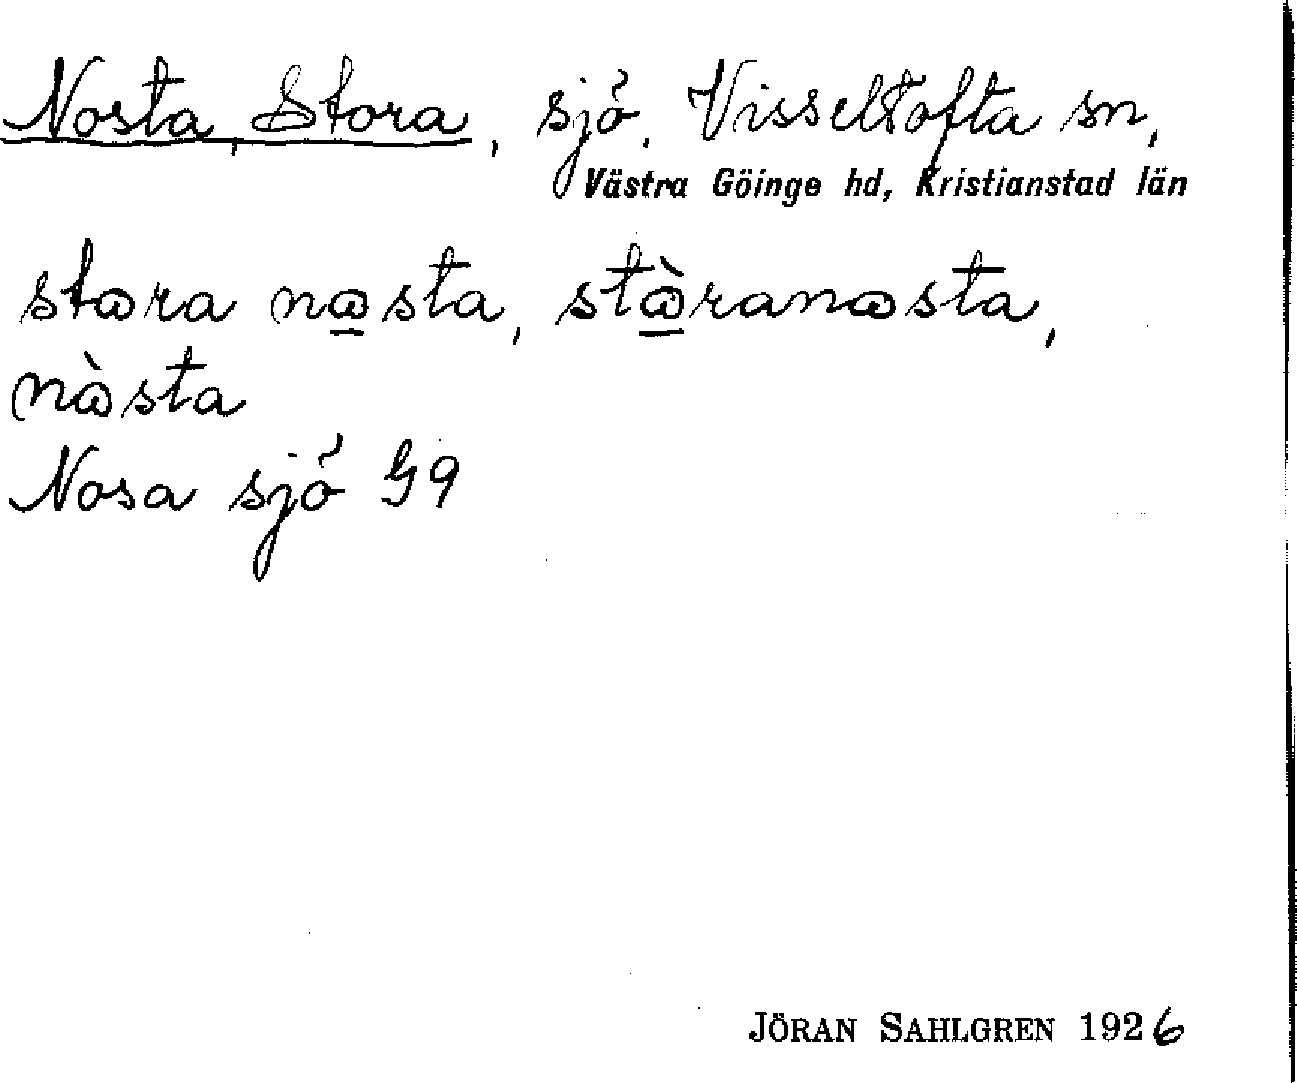 Nosta, Stora, sjö. Visseltofta sn,
Västra Göinge hd, Kristianstad län
stωra nω̲sta, stὼ̲ranωsta,
nὼsta
Nosa sjö G9
JÖRAN SAHLGREN 1926